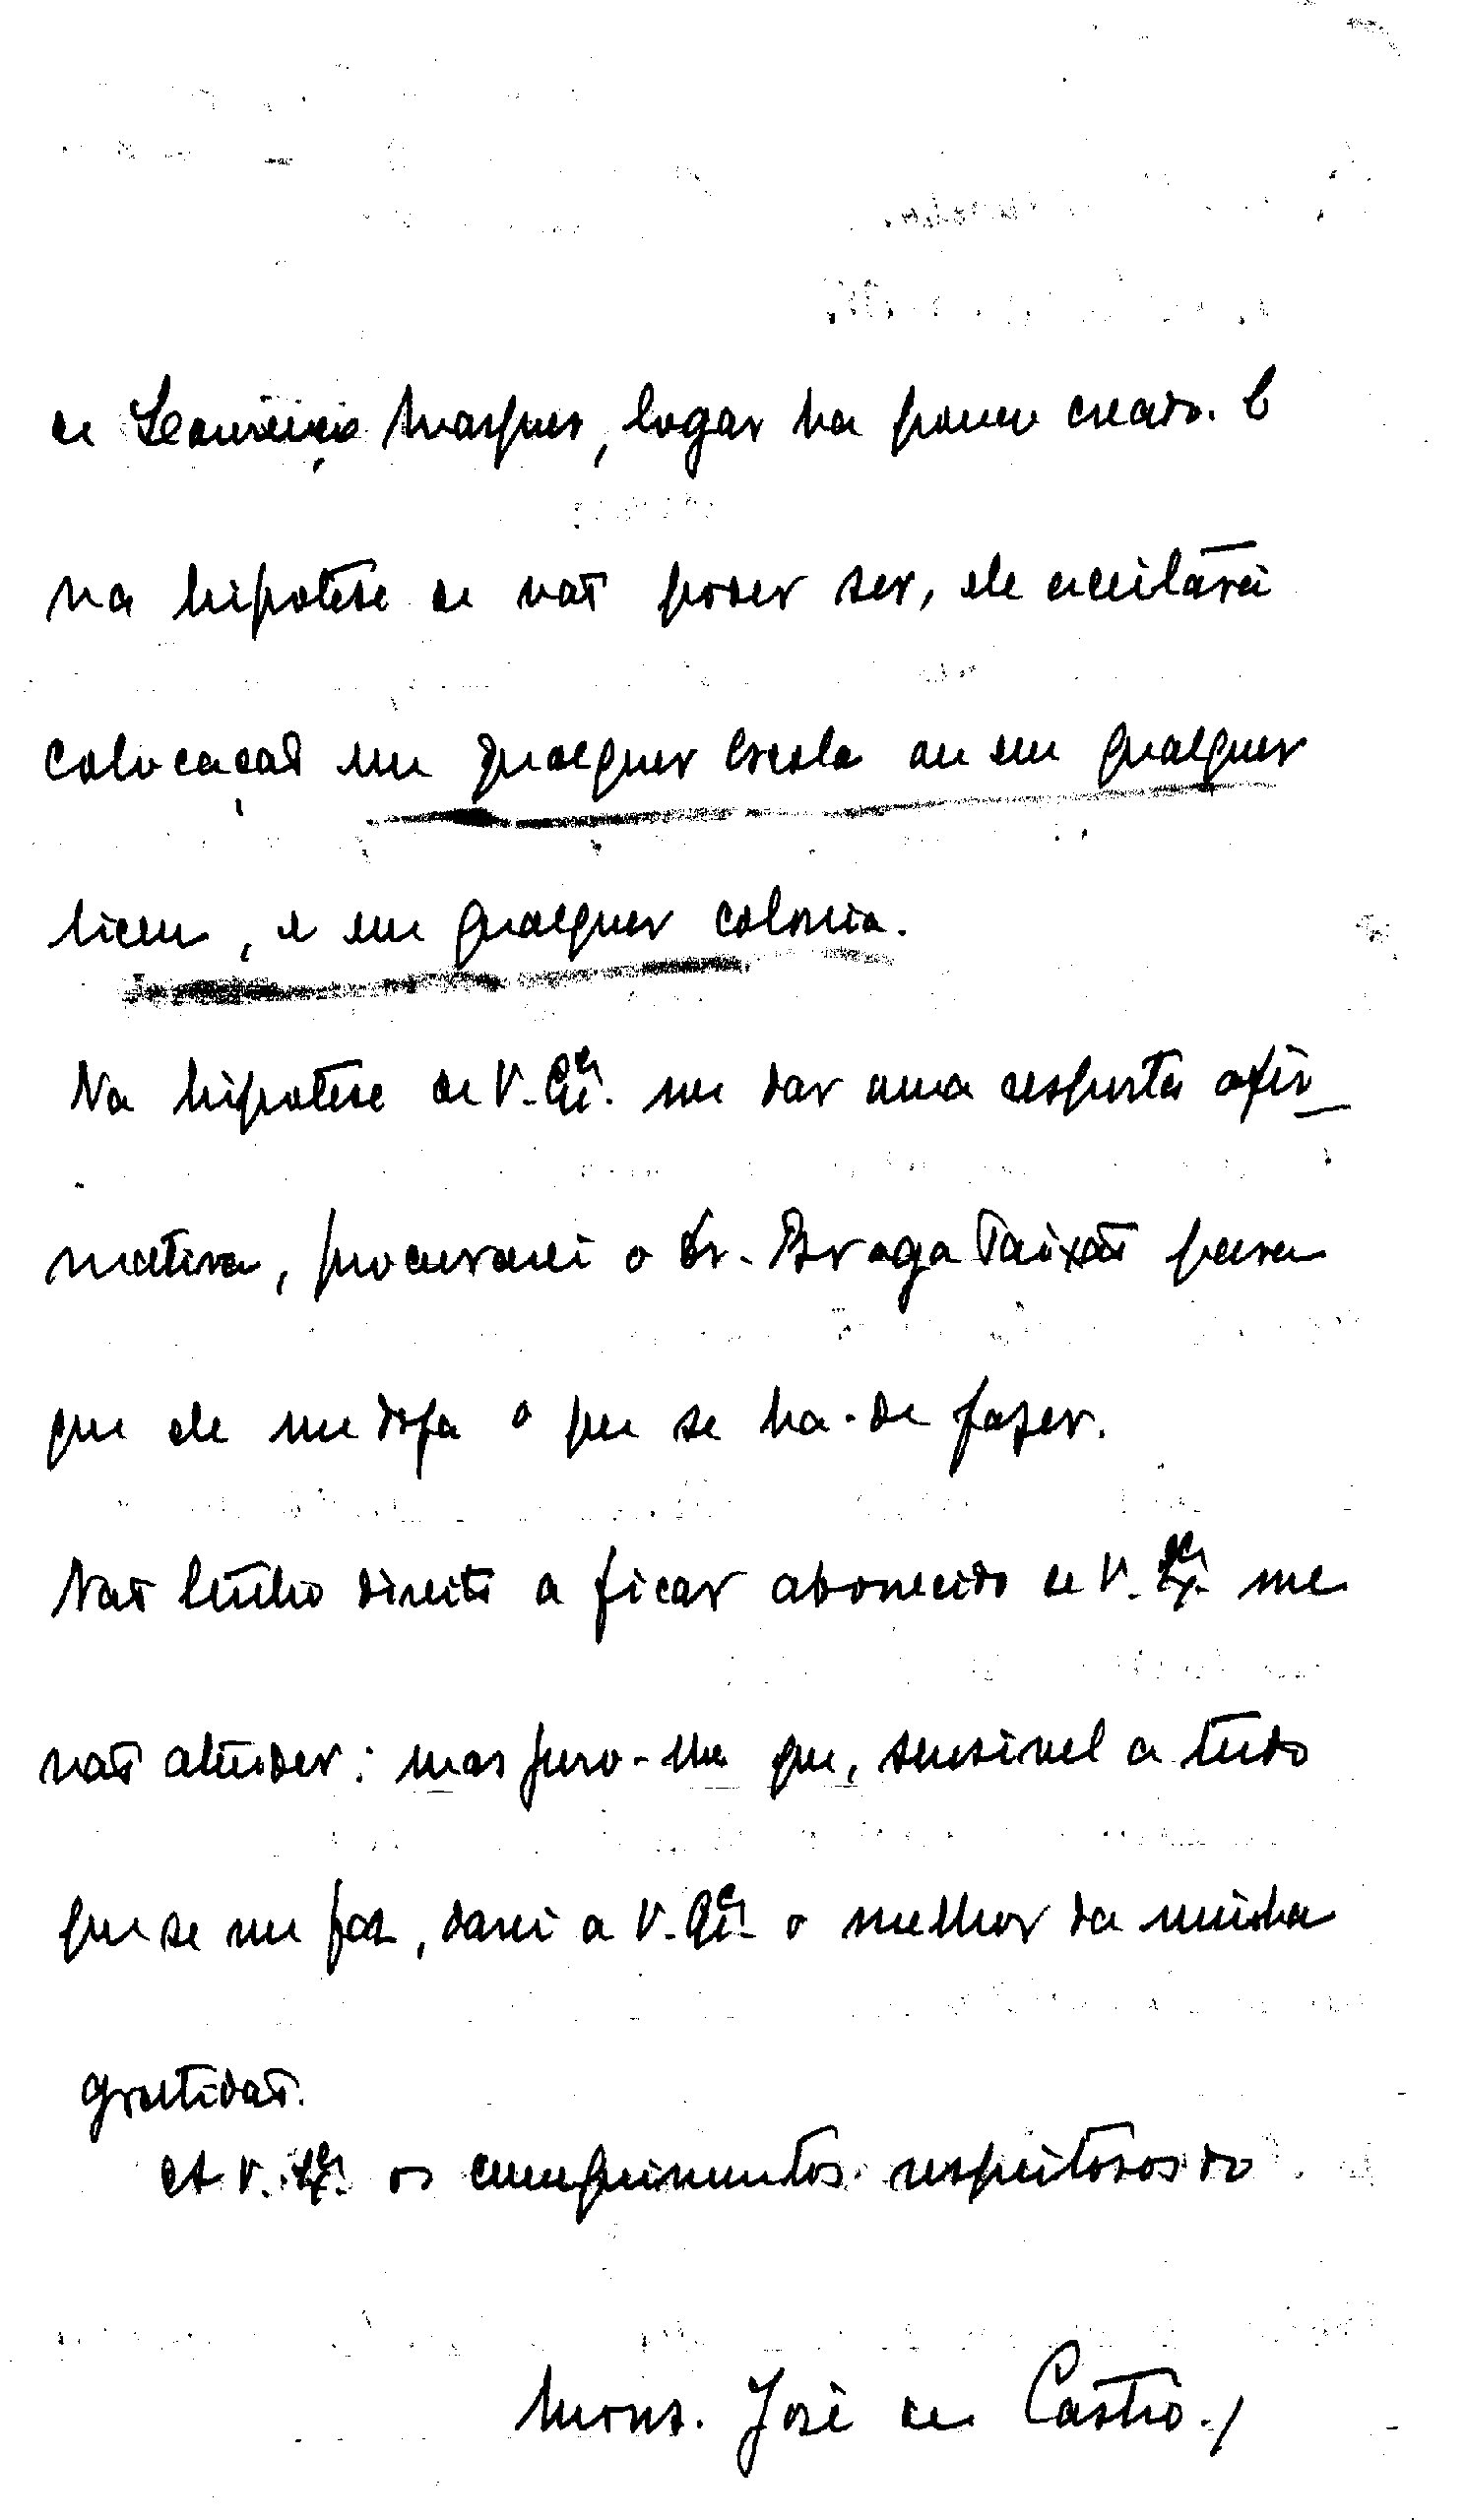 de Lourenço Marques, logar ha pouco creado. E
na hipotese de não poder ser, ele aceitará
colocação em qualquer Escola ou em qualquer
liceu, e em qualquer colonia.
Na hipotese de V. Exª. me dar uma resposta afir_
mativa, procurarei o Dr. Braga Paixão para
que ele me diga o que se ha-de fazer.
Não tenho direito a ficar aborrecido se V. Exª. me
não atender: mas juro-lhe que, sensivel a tudo
que se me faz, darei a V. Exª. o melhor da minha
gratidão.
A V. Exª. os cumprimentos respeitosos do
Mons. José de Castro./